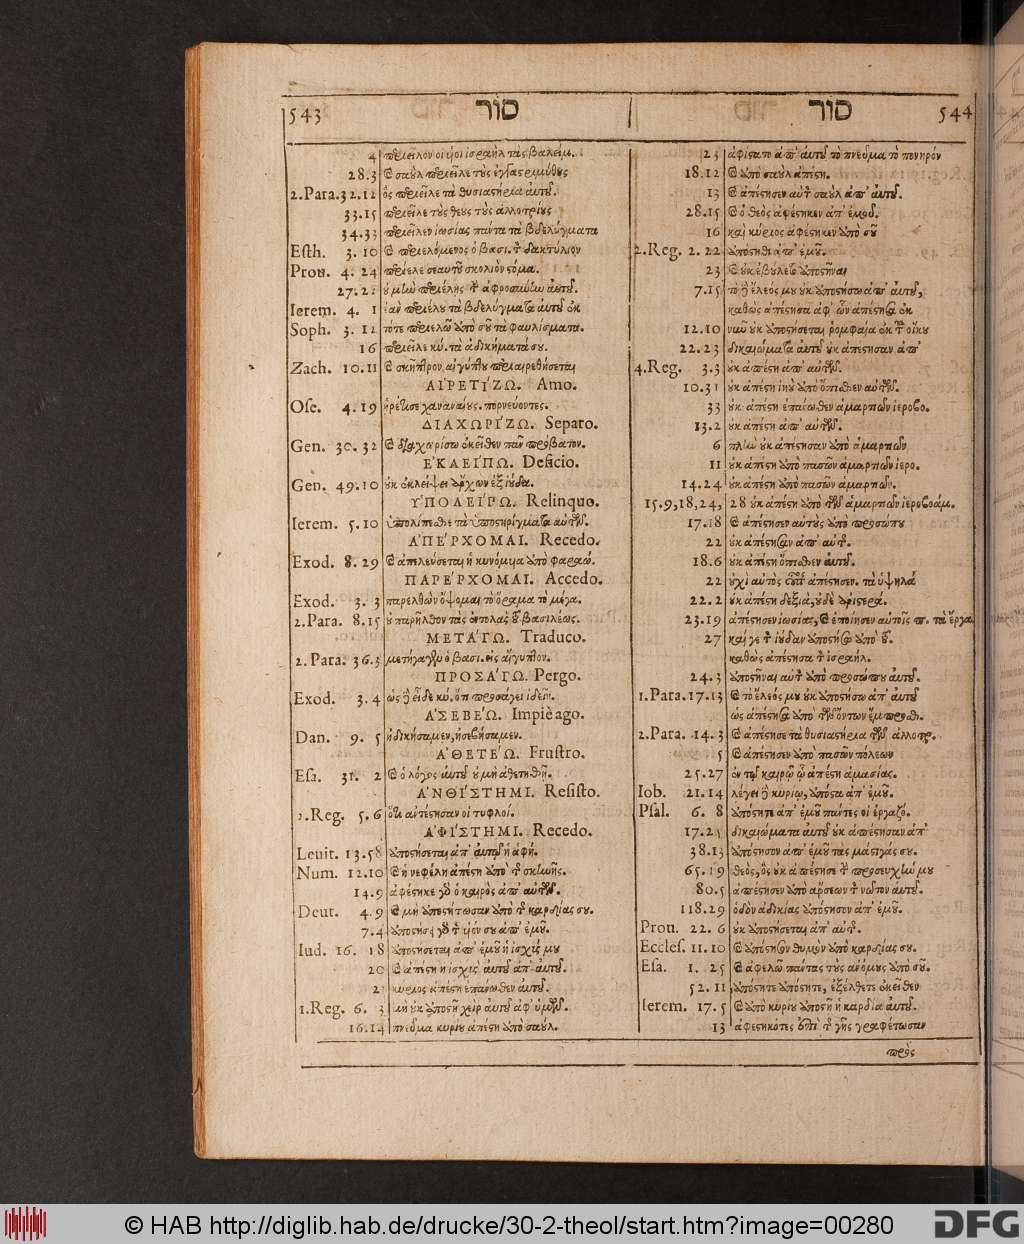 543 סור סור 544
4 περιεῖλον οἱ υἱοὶ ἰσραὴλ τὰς βαλεὶμ.
28.3 καὶ σαοὺλ περιεῖλε τοὺς ἐγγαστριμύθους
2.Para.32.12 ὃς περιεῖλε τὰ θυσιαστήρια αὐτοῦ.
33.15 περιεῖλε τοὺς θεοὺς τοὺς ἀλλοτρίους
34.33 περιεῖλεν ἰωσίας πάντα τὰ βδελύγματα
Esth. 3. 10 καὶ περιελόμενος ὁ βασι. τὸ δακτύλιον
Prou. 4. 24 περίελε σεαυτοῦ σκολιὸν στόμα.
27. 22 οὐ μὴ περιέλης τὴν ἀφροσύνην αὐτοῦ.
Ierem. 4. 1 ἐὰν περιέλῃ τὰ βδελύγματα αὐτοῦ ἐκ
Soph. 3. 12 τότε περιελῶ ἀπὸ σοῦ τὰ φαυλίσματα.
16 περιεῖλε κύ. τὰ ἀδικήματά σου.
Zach. 10.11 καὶ σκῆπτρον αἰγύπτου περιαιρεθήσεται
ΑΙ῾ΡΕΤΙ΄ΖΩ. Amo.
Ose. 4.19 ᾑρέτισε χαναναίους. πορνεύοντες.
ΔΙΑΧΩΡΙ΄ΖΩ. Separo.
Gen. 30. 32 καὶ διαχώρισον ἐκεῖθεν πᾶν πρόβατον.
Ε᾿ΚΛΕΙ΄ΠΩ. Deficio.
Gen. 49.10 οὐκ ἐκλείψει ἄρχων ἐξ ἰούδα.
Υ῾ΠΟΛΕΙ΄ΠΩ. Relinquo.
Ierem. 5.10 ὑπολίπεσθε τὰ ὑποστηρίγματα αὐτῶν.
Α᾿ΠΕ΄ΡΧΟΜΑΙ. Recedo.
Exod. 8. 29 καὶ ἀπελεύσεται ἡ κυνόμυια ἀπὸ φαραώ.
ΠΑΡΕ΄ΡΧΟΜΑΙ. Accedo.
Exod. 3. 3 παρελθὼν ὄψομαι τὸ ὅραμα τὸ μέγα.
2.Para. 8.15 οὐ παρῆλθον τὰς ἐντολὰς τοῦ βασιλέως.
ΜΕΤΑ΄ΓΩ. Traduco.
2. Para. 36.3 μετήγαγεν ὁ βασι. εἰς αἴγυπτον.
ΠΡΟΣΑ΄ΓΩ. Pergo.
Exod. 3. 4 ὡς δὲ εἶδε κύ, ὅτι προσάγει ἰδεῖν.
Α᾿ΣΕΒΕ΄Ω. Impiè ago.
Dan. 9. 5 ἠδικήσαμεν, ἠσεβήσαμεν.
Α᾿ΘΕΤΕ΄Ω. Frustro.
Esa. 31. 2 καὶ ὁ λόγος αὐτοῦ οὐ μὴ ἀθετηθῇ.
Α᾿ΝΘΙ΄ΣΤΗΜΙ. Resisto.
2.Reg. 5.6 ὅτι ἀντέστησαν οἱ τυφλοί.
Α᾿ΦΙ΄ΣΤΗΜΙ. Recedo.
Leuit. 13.58 ἀποστήσεται ἀπ᾿ αὐτοῦ ἡ ἀφή.
Num. 12.10 καὶ ἡ νεφέλη ἀπέστη ἀπὸ τῆς σκηνῆς.
14.9 ἀφέστηκε γὰρ ὁ καιρὸς ἀπ᾿ αὐτῶν.
Deut. 4. 9 καὶ μὴ ἀποστήτωσαν ἀπὸ τῆς καρδίας σου.
7.4 ἀποστήσει γὰρ τὸν υἱόν σου ἀπ᾿ ἐμοῦ.
Iud. 16. 18 ἀποστήσεται ἀπ᾿ ἐμοῦ ἡ ἰσχύς μου
20 καὶ ἀπέστη ἡ ἰσχὺς αὐτοῦ ἀπ᾿ αὐτοῦ.
κύριος ἀπέστη ἐπάνωθεν αὐτοῦ.
1.Reg. 6. 3 μὴ οὐκ ἀποστῇ χεὶρ αὐτοῦ ἀφ᾿ ὑμῶν.
16.14 πνεῦμα κυρίου ἀπέστη ἀπὸ σαούλ.
23 ἀφίστατο ἀπ᾿ αὐτοῦ τὸ πνεῦμα τὸ πονηρόν
18.12 καὶ ἀπὸ σαοὺλ ἀπέστη.
13 καὶ ἀπέστησεν αὐτὸν σαοὺλ ἀπ᾿ αὐτοῦ.
28.15 καὶ ὁ θεὸς ἀφέστηκεν ἀπ᾿ ἐμοῦ.
16 καὶ κύριος ἀφέστηκεν ἀπὸ σοῦ
2.Reg. 2. 22 ἀπόστηθι ἀπ᾿ ἐμοῦ.
23 καὶ οὐκ ἐβούλετο ἀποστῆναι
7.15 τὸ δὲ ἔλεός μου οὐκ ἀποστήσω ἀπ᾿ αὐτοῦ,
καθὼς ἀπέστησα ἀφ᾿ ὧν ἀπέστησα ἐκ
12.10 νῦν οὐκ ἀποστήσεται ῥομφαία ἐκ τοῦ οἴκου
22.23 δικαιώματα αὐτοῦ οὐκ ἀπέστησαν ἀπ᾿
4.Reg. 3.3 οὐκ ἀπέστη ἀπ᾿ αὐτῶν.
10.31 οὐκ ἀπέστη ἰηοὺ ἀπὸ ὄπισθεν αὐτῶν.
33 οὐκ ἀπέστη ἐπάνωθεν ἁμαρτιῶν ἱεροβο.
13.2 οὐκ ἀπέστη ἀπ᾿ αὐτῶν.
6 πλὴν οὐκ ἀπέστησαν ἀπὸ ἁμαρτιῶν
11 οὐκ ἀπέστη ἀπὸ πασῶν ἁμαρτιῶν ἱερο.
14.24 οὐκ ἀπέστη ἀπὸ πασῶν ἁμαρτιῶν.
15.9,18,24, 28 οὐκ ἀπέστη ἀπὸ τῶν ἁμαρτιῶν ἱεροβοάμ.
17.18 καὶ ἀπέστησεν αὐτοὺς ἀπὸ προσώπου
22 οὐκ ἀπέστησαν ἀπ᾿ αὐτῆς.
18.6 οὐκ ἀπέστη ὄπισθεν αὐτοῦ.
22 οὐχὶ αὐτὸς οὗτος ἀπέστησεν. τὰ ὑψηλὰ
22.2 οὐκ ἀπέστη δεξιὰ, οὐδὲ ἀριστερά.
23.19 ἀπέστησεν ἰωσίας, καὶ ἐποίησεν αὐτοῖς π. τὰ ἔργα
27 καί γε τὸν ἰούδαν ἀποστήσω ἀπὸ τοῦ.
καθὼς ἀπέστησα τὸν ἰσραήλ.
24.3 ἀποστῆναι αὐτὸν ἀπὸ προσώπου αὐτοῦ.
1.Para.17.13 καὶ τὸ ἔλεός μου οὐκ ἀποστήσω ἀπ᾿ αὐτοῦ
ὡς ἀπέστησα ἀπὸ τῶν ὄντων ἔμπροσθ.
2.Para. 14.3 καὶ ἀπέστησε τὰ θυσιαστήρια τῶν ἀλλοτρ.
5 καὶ ἀπέστησεν ἀπὸ πασῶν πόλεων
25.27 ἐν τῷ καιρῷ ᾧ ἀπέστη ἀμασίας.
Iob. 21.14 λέγει δὲ κυρίῳ, ἀπόστα ἀπ᾿ ἐμοῦ.
Psal. 6. 8 ἀπόστητε ἀπ᾿ ἐμοῦ πάντες οἱ ἐργαζό.
17.25 δικαιώματα αὐτοῦ οὐκ ἀπέστησαν ἀπ᾿
38.13 ἀπόστησον ἀπ᾿ ἐμοῦ τὰς μάστιγάς σου.
65.19 θεὸς, ὃς οὐκ ἀπέστησε τὴν προσευχήν μου
80.5 ἀπέστησεν ἀπὸ ἄρσεων τὸν νῶτον αὐτοῦ.
118.29 ὁδὸν ἀδικίας ἀπόστησον ἀπ᾿ ἐμοῦ.
Prou. 22. 6 οὐκ ἀποστήσεται ἀπ᾿ αὐτῆς.
Eccles. 11.10 καὶ ἀπόστησον θυμὸν ἀπὸ καρδίας σου.
Esa. 1. 25 καὶ ἀφελῶ πάντας τοὺς ἀνόμους ἀπὸ σοῦ.
52.11 ἀπόστητε ἀπόστητε, ἐξέλθετε ἐκεῖθεν
Ierem. 17.5 καὶ ἀπὸ κυρίου ἀποστῇ ἡ καρδία αὐτοῦ.
13 ἀφεστηκότες ἐπὶ τῆς γῆς γραφέτωσαν
πρὸς
© HAB http://diglib.hab.de/drucke/30-2-theol/start.htm?image=00280 DFG